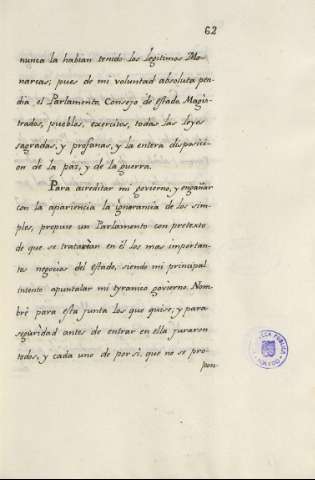 62
nunca la habian tenido los legitimos Mo-
narcas; pues de mi voluntad absoluta pen-
dia el Parlamento Consejo de estado Magis-
trados, pueblos, exercitos, todas las leyes
sagradas, y profanas, y la entera disposici-
on de la paz, y de la guerra.
Para acreditar mi govierno, y engañar
con la apariencia la ignorancia de los sim-
ples, propuse un Parlamento con pretexto
de que se tratarian en él los mas importan-
tes negocios del estado, siendo mi principal
intento apuntalar mi tyranico govierno. Nom-
bré para esta junta los que quise, y para
seguridad antes de entrar en ella juraron
todos, y cada uno de por si, que no se pro-
pon